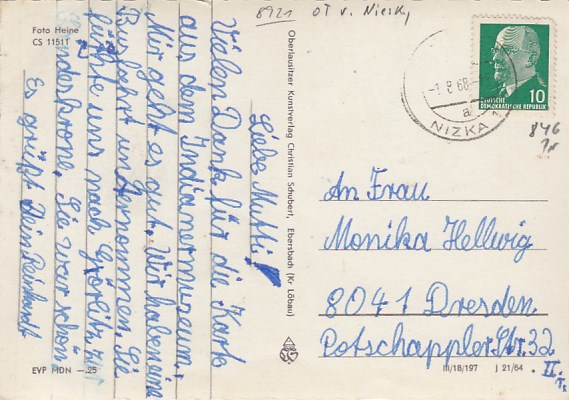 8921 OT v. Niesky
Foto Heine
CS 1151T
Liebe Mutti!
Vielen Dank für die Karte
aus dem Indianermuseum.
Mir geht es gut. Wir haben eine
Busfahrt unternommen. Sie
führte uns nach Görlitz zur
Landeskrone. Sie war schön
Es grüßt Dein Reinhardt
EVP MDN –.25
Oberlausitzer Kunstverlag Christian Schubert, Ebersbach (Kr Löbau)
DEUTSCHE
DEMOKRATISCHE REPUBLIK
10
-1.8.68
a
NIZKA
846
An Frau
Monika Hellwig
8041 Dresden
Potschappler Str. 32
II.
III/18/197 J 21/64